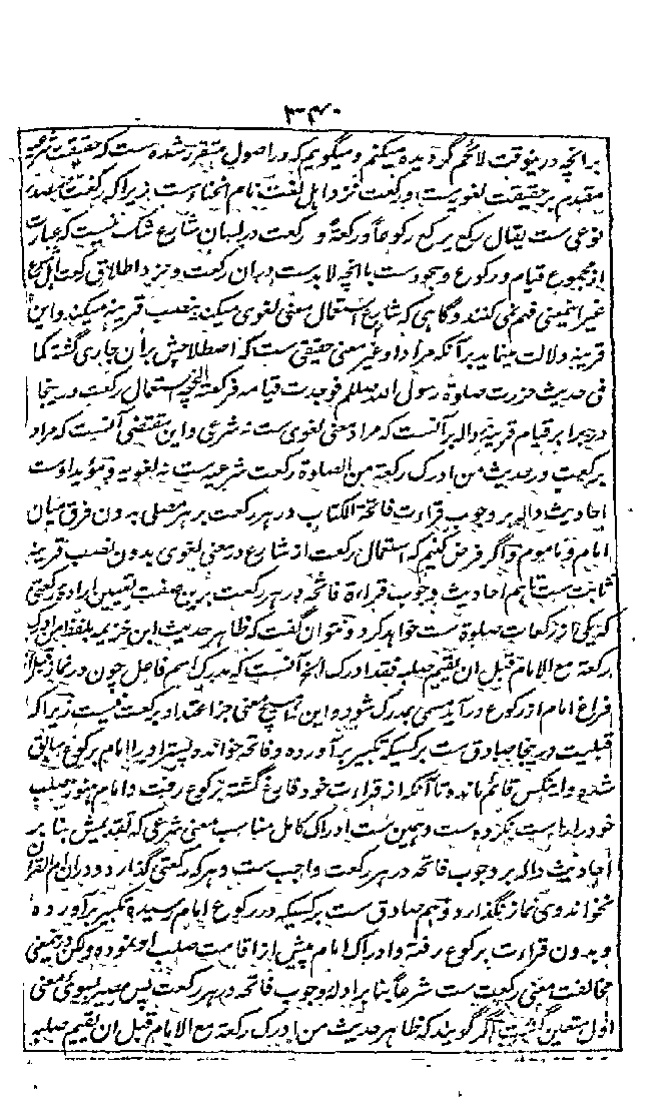 ۳۴۰
برانچه درینوقت لائحم گردیده میکنم و میگویم که در اصول متقرر شده است که حقیقت شرعیه
مقدم بر حقیقت لغویه است و رکعت نزد اهل لغت نام انحناءست زیرا که رکعت مصدر
نوعی ست یقال رکع یرکع رکوعاً و رکعةً و رکعت در لسان شارع شک نیست که عبارت
از مجموع قیام و رکوع و سجودست با انچه لابدست دران رکعت و نزد اطلاق رکعت اهل شرع
غیر این معنی فهم نمی کنند و گاهی که شارع استعمال معنی لغوی میکند نصب قرینه میکند و این
قرینه دلالت مینماید بر آنکه مراد او غیر معنی حقیقی ست که اصطلاحش بران جاری گشته کما
فی حدیث حزرت صلوة رسول الله صلعم فوجدت قیامه فرکعته الخ چه استعمال رکعت در ینجا
در برابر قیام قرینه داله بر آنست که مراد معنی لغوی ست نه شرعی و این مقتضی آنست که مراد
برکعت در حدیث من ادرک رکعة من الصلوة رکعت شرعیه ست نه لغویه و مؤید اوست
احادیث داله بر وجوب قراءت فاتحة الکتاب در هر رکعت بر هر مصلی بدون فرق میان
امام و ماموم و اگر فرض کنیم که استعمال رکعت از شارع در معنی لغوی بدون نصب قرینه
ثابت ست تا هم احادیث وجوب قراءة فاتحه در هر رکعت برین صفت تعیین اراده رکعتی
که یکی از رکعات صلوة ست خواهد کرد و نتوان گفت که ظاهر حدیث ابن خزیمه بلفظ من ادرک
رکعة مع الامام قبل ان یقیم صلبه فقد ادرک الخ آنست که مدرک اسم فاعل چون در نماز قبل از
فراغ امام از رکوع در آید مسمی بمدرک شود و این هیچ معنی جز اعتداد برکعت نیست زیرا که
قبلیت در ینجا صادق ست بر کسیکه تکبیر برآورده و فاتحه خوانده و پستر او را امام برکوع سابق
شده و اینکس قائم مانده تا آنکه از قراءت خود فارغ گشته برکوع رفت و امام هنوز صلب
خود راست نکرده است و همین ست ادراک کامل مناسب معنی شرعی که تقدیمش بنا بر
احادیث داله بر وجوب فاتحه در هر رکعت واجب ست و هر که رکعتی گذارد و دران ام القرآن
نخواند وی نماز نگذارد و هم صادق ست بر کسیکه در رکوع امام رسیده تکبیر برآورده
و بدون قراءت برکوع رفته و ادراک امام پیش از اقامت صلب او نموده ولکن در نمعنی
مخالفت معنی رکعت ست شرعاً بنا بر ادله وجوب فاتحه در هر رکعت پس مصیر بسوی معنی
اول متعین گشت اگر گویند که ظاهر حدیث من ادرک رکعة مع الامام قبل ان یقیم صلبه